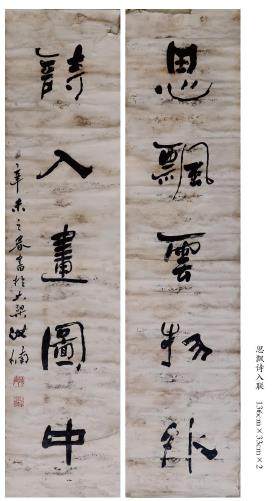 思飄雲物外
詩入畫圖中
辛未之春書於大梁
思飘诗入联 136cm×33cm×2